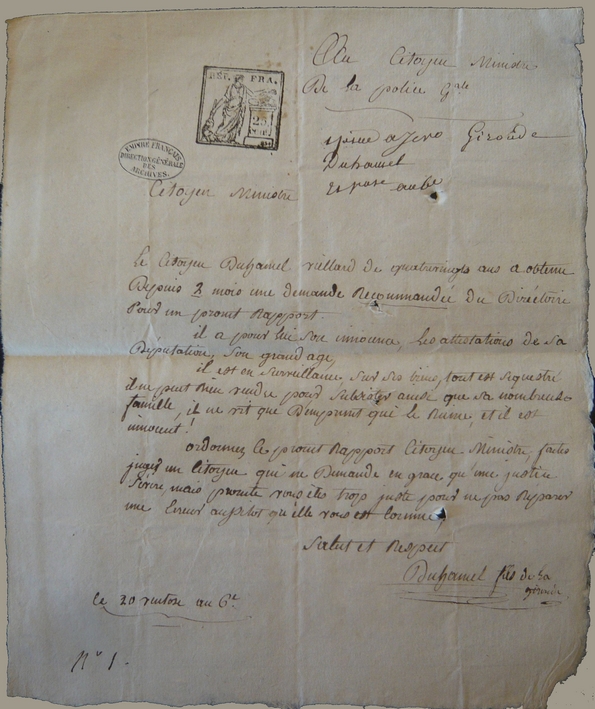 Au Citoyen Ministre
De la police gale
RÉP. FRA.
25
CENT.
Gironde
Duhamel
EMPIRE FRANÇAIS
DIRECTION GÉNÉRALE
DES
ARCHIVES.
Citoyen Ministre
le Citoyen Duhamel viellard de quatrevingts ans a obtenu
Depuis 2 mois une demande Recommandée du Directoire
Pour un promt Rapport.
il a pour lui son innocence, les attestations de sa
Députation, son grand age,
il est en Surveillance, sur ses biens, tout est sequestré
il ne peut rien vendre pour Subsister ainsi que sa nombreuse
famille, il ne vit que D'emprunt qui le Ruine, et il est
innocent!
ordonnez le promt Rapport Citoyen Ministre, faites
juger un Citoyen qui ne Demande en grace qu'une justice
Sévère, mais promte vous êtes trop juste pour ne pas Reparer
une Erreur aussitot qu'elle vous est Connue,
Salut et Respect
Duhamel fils de la
Gironde
le 20 ventose an 6e
No 1.